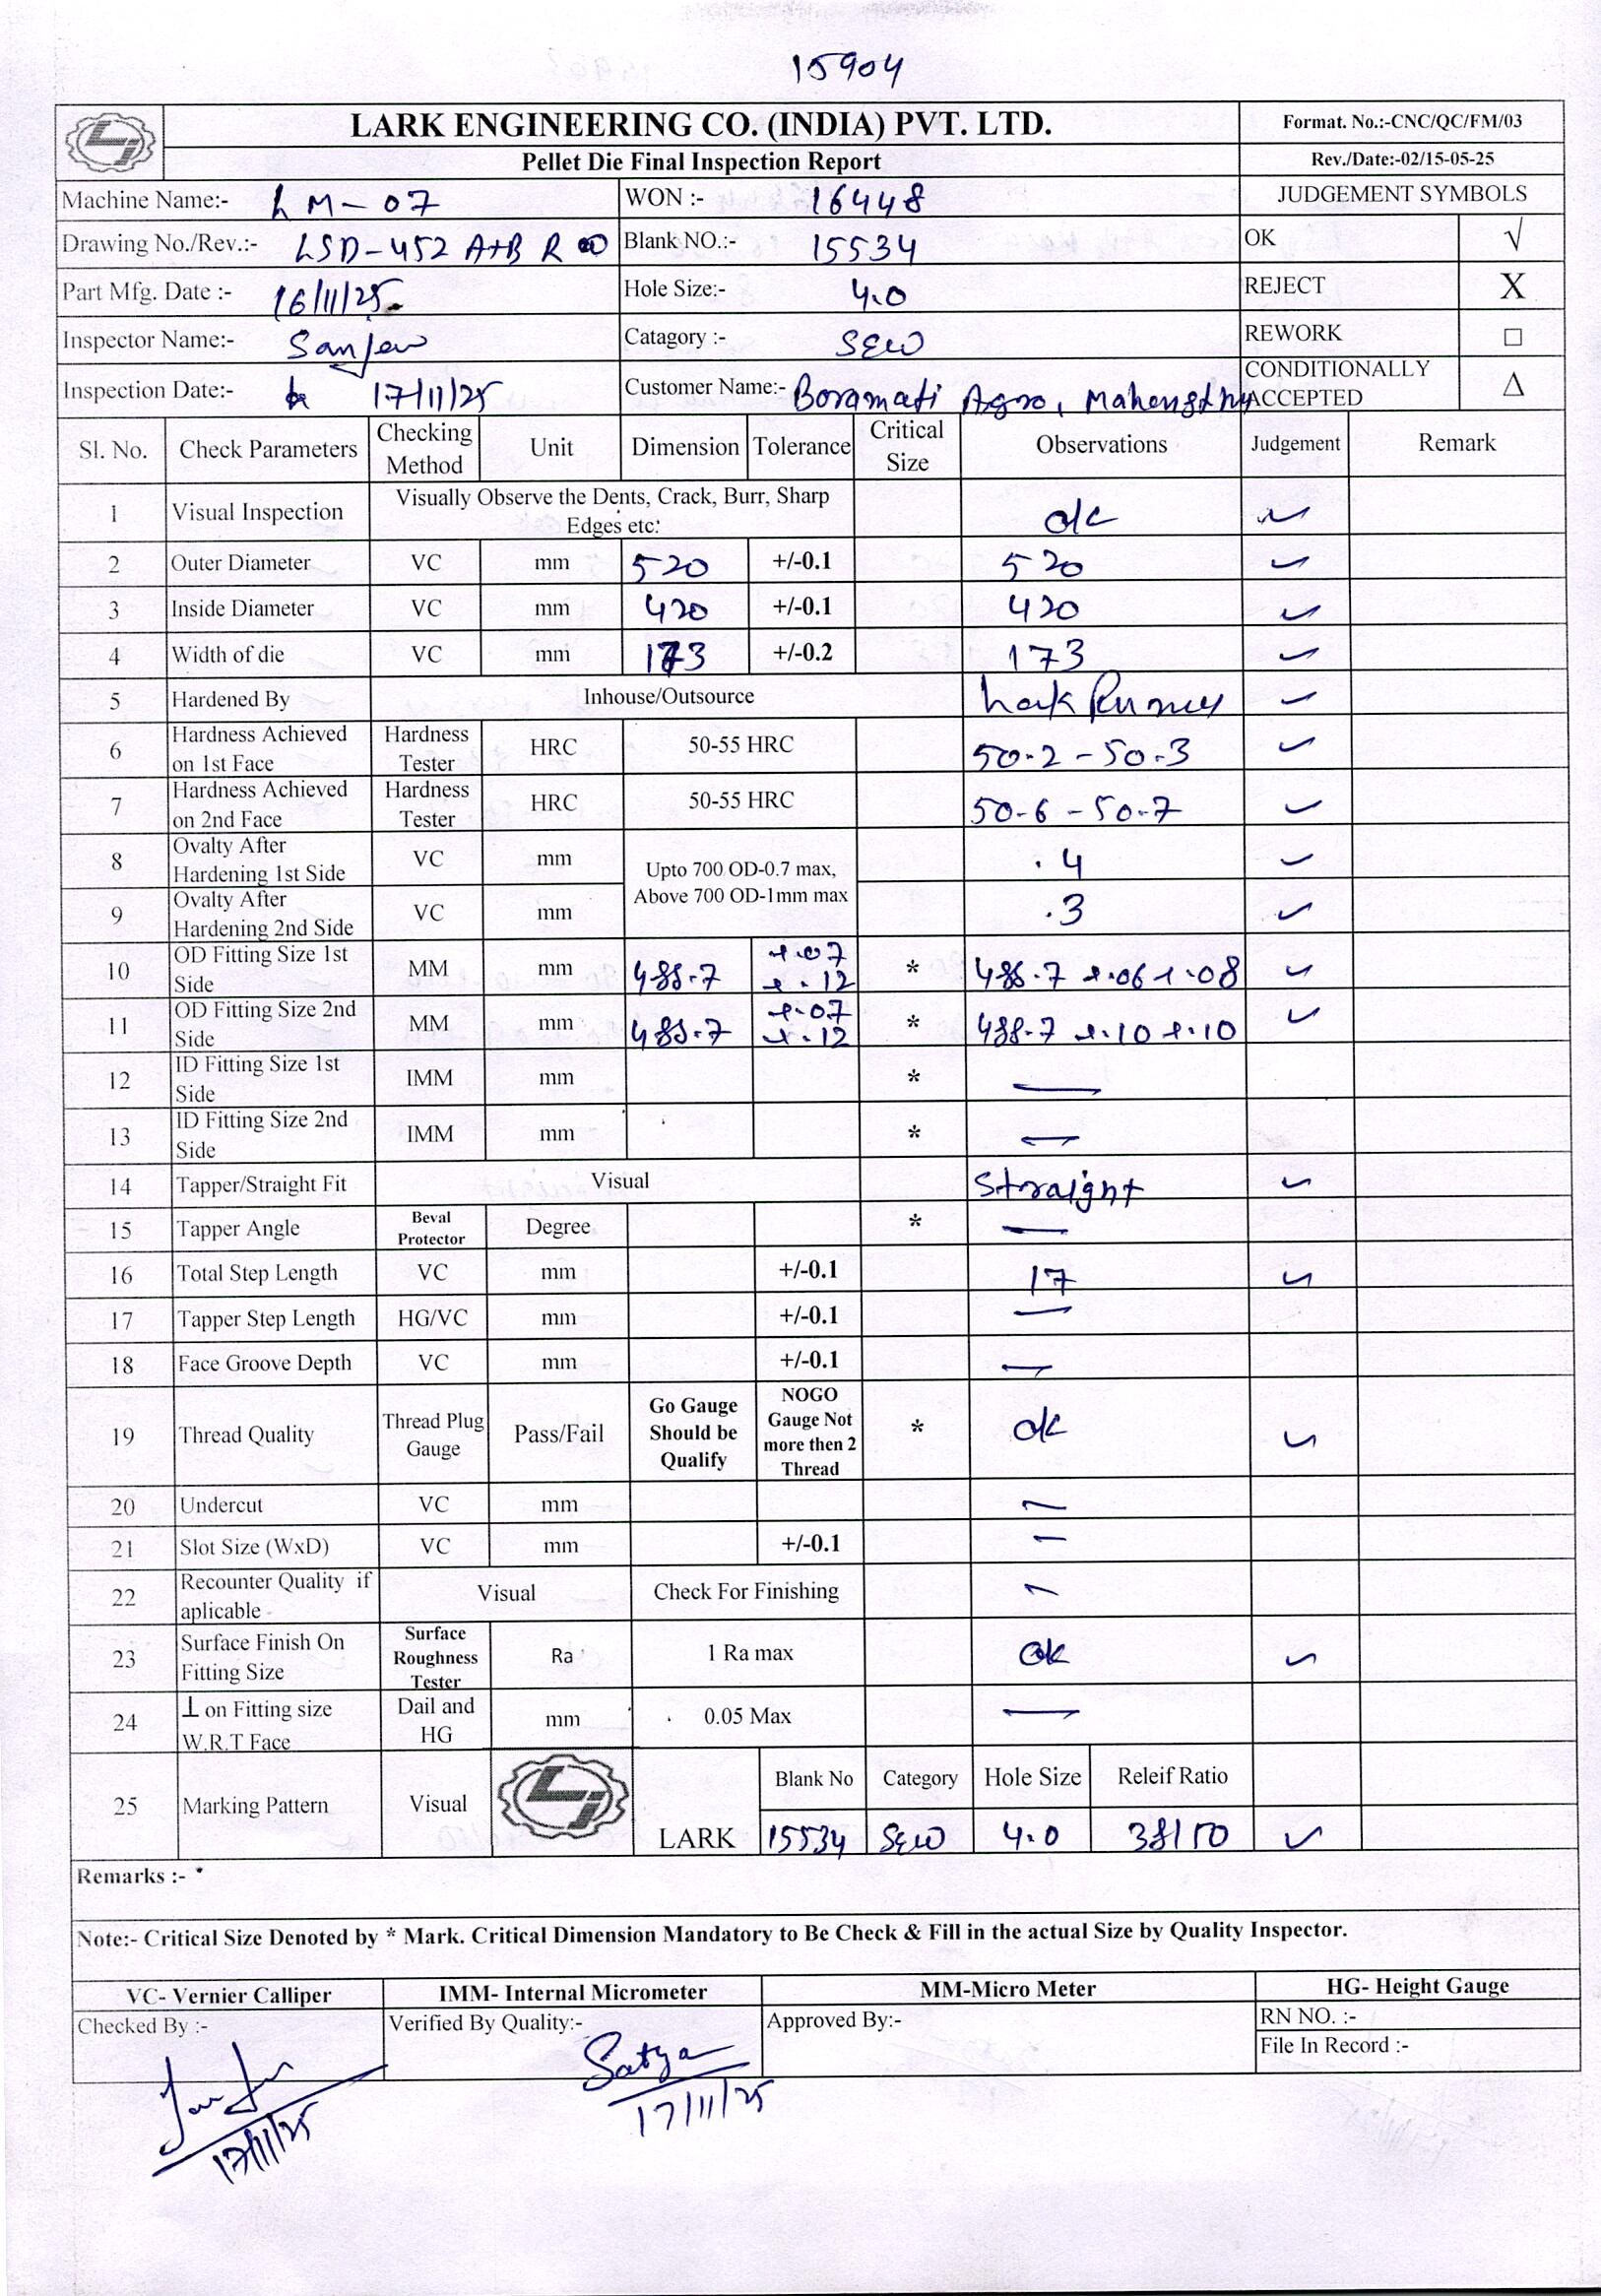 15904
LARK ENGINEERING CO. (INDIA) PVT. LTD.
Format. No.:-CNC/QC/FM/03
Pellet Die Final Inspection Report
Rev./Date:-02/15-05-25
Machine Name:- LM-07 WON :- 16448 JUDGEMENT SYMBOLS
Drawing No./Rev.:- LSD-452 A+B R Blank NO.:- 15534 OK √
Part Mfg. Date :- 16/11/25 Hole Size:- 4.0 REJECT X
Inspector Name:- Sanjeev Catagory :- SEW REWORK □
Inspection Date:- 17/11/25 Customer Name:- Boramati Agro, CONDITIONALLY ACCEPTED Δ
Sl. No. Check Parameters Checking Method Unit Dimension Tolerance Critical Size Observations Judgement Remark
1 Visual Inspection Visually Observe the Dents, Crack, Burr, Sharp Edges etc: ok ✓
2 Outer Diameter VC mm 520 +/-0.1 520 ✓
3 Inside Diameter VC mm 420 +/-0.1 420 ✓
4 Width of die VC mm 173 +/-0.2 173 ✓
5 Hardened By Inhouse/Outsource Lark ✓
6 Hardness Achieved on 1st Face Hardness Tester HRC 50-55 HRC 50.2 - 50.3 ✓
7 Hardness Achieved on 2nd Face Hardness Tester HRC 50-55 HRC 50.6 - 50.7 ✓
8 Ovalty After Hardening 1st Side VC mm Upto 700 OD-0.7 max, Above 700 OD-1mm max .4 ✓
9 Ovalty After Hardening 2nd Side VC mm .3 ✓
10 OD Fitting Size 1st Side MM mm 488.7 +.07 +.12 * 488.7 +.06 +.08 ✓
11 OD Fitting Size 2nd Side MM mm 488.7 +.07 +.12 * 488.7 +.10 +.10 ✓
12 ID Fitting Size 1st Side IMM mm * —
13 ID Fitting Size 2nd Side IMM mm * —
14 Tapper/Straight Fit Visual Straight ✓
15 Tapper Angle Beval Protector Degree * —
16 Total Step Length VC mm +/-0.1 17 ✓
17 Tapper Step Length HG/VC mm +/-0.1 —
18 Face Groove Depth VC mm +/-0.1 —
19 Thread Quality Thread Plug Gauge Pass/Fail Go Gauge Should be Qualify NOGO Gauge Not more then 2 Thread * ok ✓
20 Undercut VC mm —
21 Slot Size (WxD) VC mm +/-0.1 —
22 Recounter Quality if aplicable Visual Check For Finishing —
23 Surface Finish On Fitting Size Surface Roughness Tester Ra 1 Ra max ok ✓
24 ⊥ on Fitting size W.R.T Face Dail and HG mm 0.05 Max —
25 Marking Pattern Visual LARK Blank No Category Hole Size Releif Ratio
15534 SEW 4.0 38/50 ✓
Remarks :- *
Note:- Critical Size Denoted by * Mark. Critical Dimension Mandatory to Be Check & Fill in the actual Size by Quality Inspector.
VC- Vernier Calliper IMM- Internal Micrometer MM-Micro Meter HG- Height Gauge
Checked By :- Verified By Quality:- Approved By:- RN NO. :-
File In Record :-
Satya
17/11/25
17/11/25